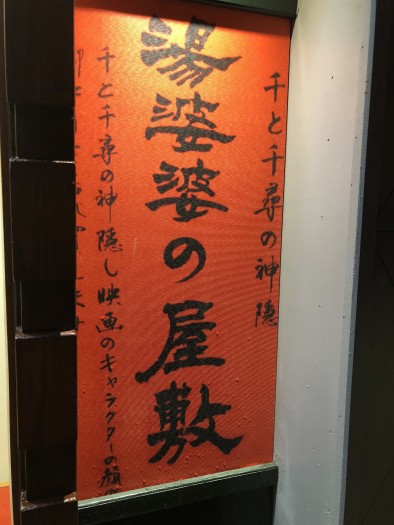 千と千尋の神隠
湯婆婆の屋敷
千と千尋の神隠し映画のキャラクターの顔